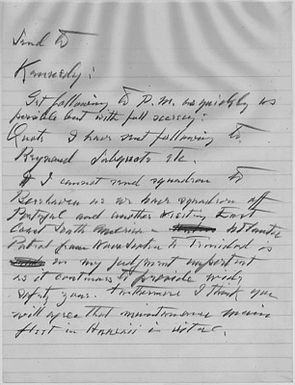 Send to
Kennedy:
Get following to P.M. as quickly as
possible but with full secrecy:
Quote I have sent following to
Reynaud subquote etc.
I cannot send squadron to
Berehaven as we have squadron off
Portugal and another visiting East
Coast South America. Atlantic
Patrol from Nova Scotia to Trinidad is
in my judgment important
as it continues to provide wide
safety zone. Furthermore I think you
will agree that maintenance main
fleet in Hawaii is vital.